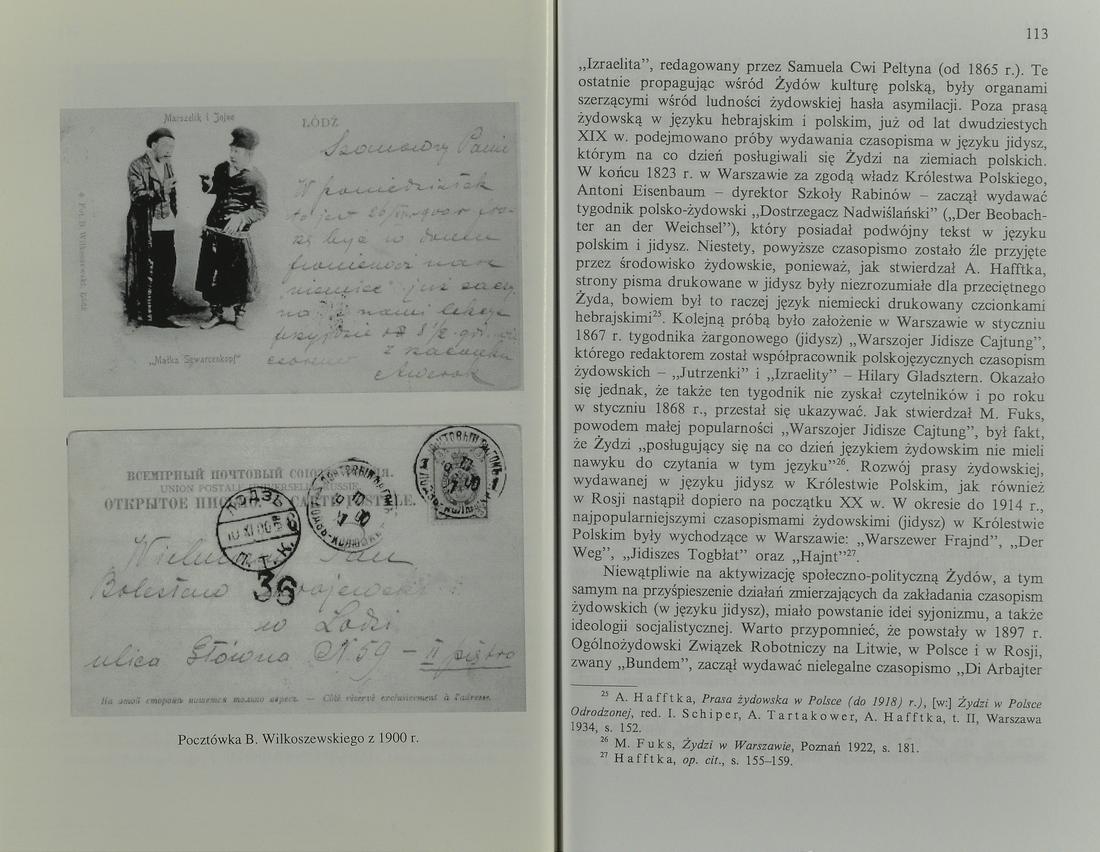 Marszelik i Jojne
ŁÓDŹ
Szanowny Panie
W poniedziałek
być w domu
ponieważ nasz
niemiec już
z nami lekcje
przyjdzie 8½
z szacunkiem
„Małka Szwarcenkopf”
ВСЕМІРНЫЙ ПОЧТОВЫЙ СОЮЗ.
UNION POSTALE UNIVERSELLE. RUSSIE.
ОТКРЫТОЕ ПИСЬМО. CARTE POSTALE.
ЛОДЗЬ
10 XI 00
П. Т. К.
36
Pan
Bolesław
w Łodzi
ulica Główna N 59 – II piętro
На этой сторонѣ пишется только адресъ. — Côté réservé exclusivement à l'adresse.
Pocztówka B. Wilkoszewskiego z 1900 r.
113
„Izraelita”, redagowany przez Samuela Cwi Peltyna (od 1865 r.). Te
ostatnie propagując wśród Żydów kulturę polską, były organami
szerzącymi wśród ludności żydowskiej hasła asymilacji. Poza prasą
żydowską w języku hebrajskim i polskim, już od lat dwudziestych
XIX w. podejmowano próby wydawania czasopisma w języku jidysz,
którym na co dzień posługiwali się Żydzi na ziemiach polskich.
W końcu 1823 r. w Warszawie za zgodą władz Królestwa Polskiego,
Antoni Eisenbaum – dyrektor Szkoły Rabinów – zaczął wydawać
tygodnik polsko-żydowski „Dostrzegacz Nadwiślański” („Der Beobach-
ter an der Weichsel”), który posiadał podwójny tekst w języku
polskim i jidysz. Niestety, powyższe czasopismo zostało źle przyjęte
przez środowisko żydowskie, ponieważ, jak stwierdzał A. Hafftka,
strony pisma drukowane w jidysz były niezrozumiałe dla przeciętnego
Żyda, bowiem był to raczej język niemiecki drukowany czcionkami
hebrajskimi²⁵. Kolejną próbą było założenie w Warszawie w styczniu
1867 r. tygodnika żargonowego (jidysz) „Warszojer Jidisze Cajtung”,
którego redaktorem został współpracownik polskojęzycznych czasopism
żydowskich – „Jutrzenki” i „Izraelity” – Hilary Gladsztern. Okazało
się jednak, że także ten tygodnik nie zyskał czytelników i po roku
w styczniu 1868 r., przestał się ukazywać. Jak stwierdzał M. Fuks,
powodem małej popularności „Warszojer Jidisze Cajtung”, był fakt,
że Żydzi „posługujący się na co dzień językiem żydowskim nie mieli
nawyku do czytania w tym języku”²⁶. Rozwój prasy żydowskiej,
wydawanej w języku jidysz w Królestwie Polskim, jak również
w Rosji nastąpił dopiero na początku XX w. W okresie do 1914 r.,
najpopularniejszymi czasopismami żydowskimi (jidysz) w Królestwie
Polskim były wychodzące w Warszawie: „Warszewer Frajnd”, „Der
Weg”, „Jidiszes Togbłat” oraz „Hajnt”²⁷.
Niewątpliwie na aktywizację społeczno-polityczną Żydów, a tym
samym na przyśpieszenie działań zmierzających da zakładania czasopism
żydowskich (w języku jidysz), miało powstanie idei syjonizmu, a także
ideologii socjalistycznej. Warto przypomnieć, że powstały w 1897 r.
Ogólnożydowski Związek Robotniczy na Litwie, w Polsce i w Rosji,
zwany „Bundem”, zaczął wydawać nielegalne czasopismo „Di Arbajter
²⁵ A. Hafftka, Prasa żydowska w Polsce (do 1918) r.), [w:] Żydzi w Polsce
Odrodzonej, red. I. Schiper, A. Tartakower, A. Hafftka, t. II, Warszawa
1934, s. 152.
²⁶ M. Fuks, Żydzi w Warszawie, Poznań 1922, s. 181.
²⁷ Hafftka, op. cit., s. 155–159.